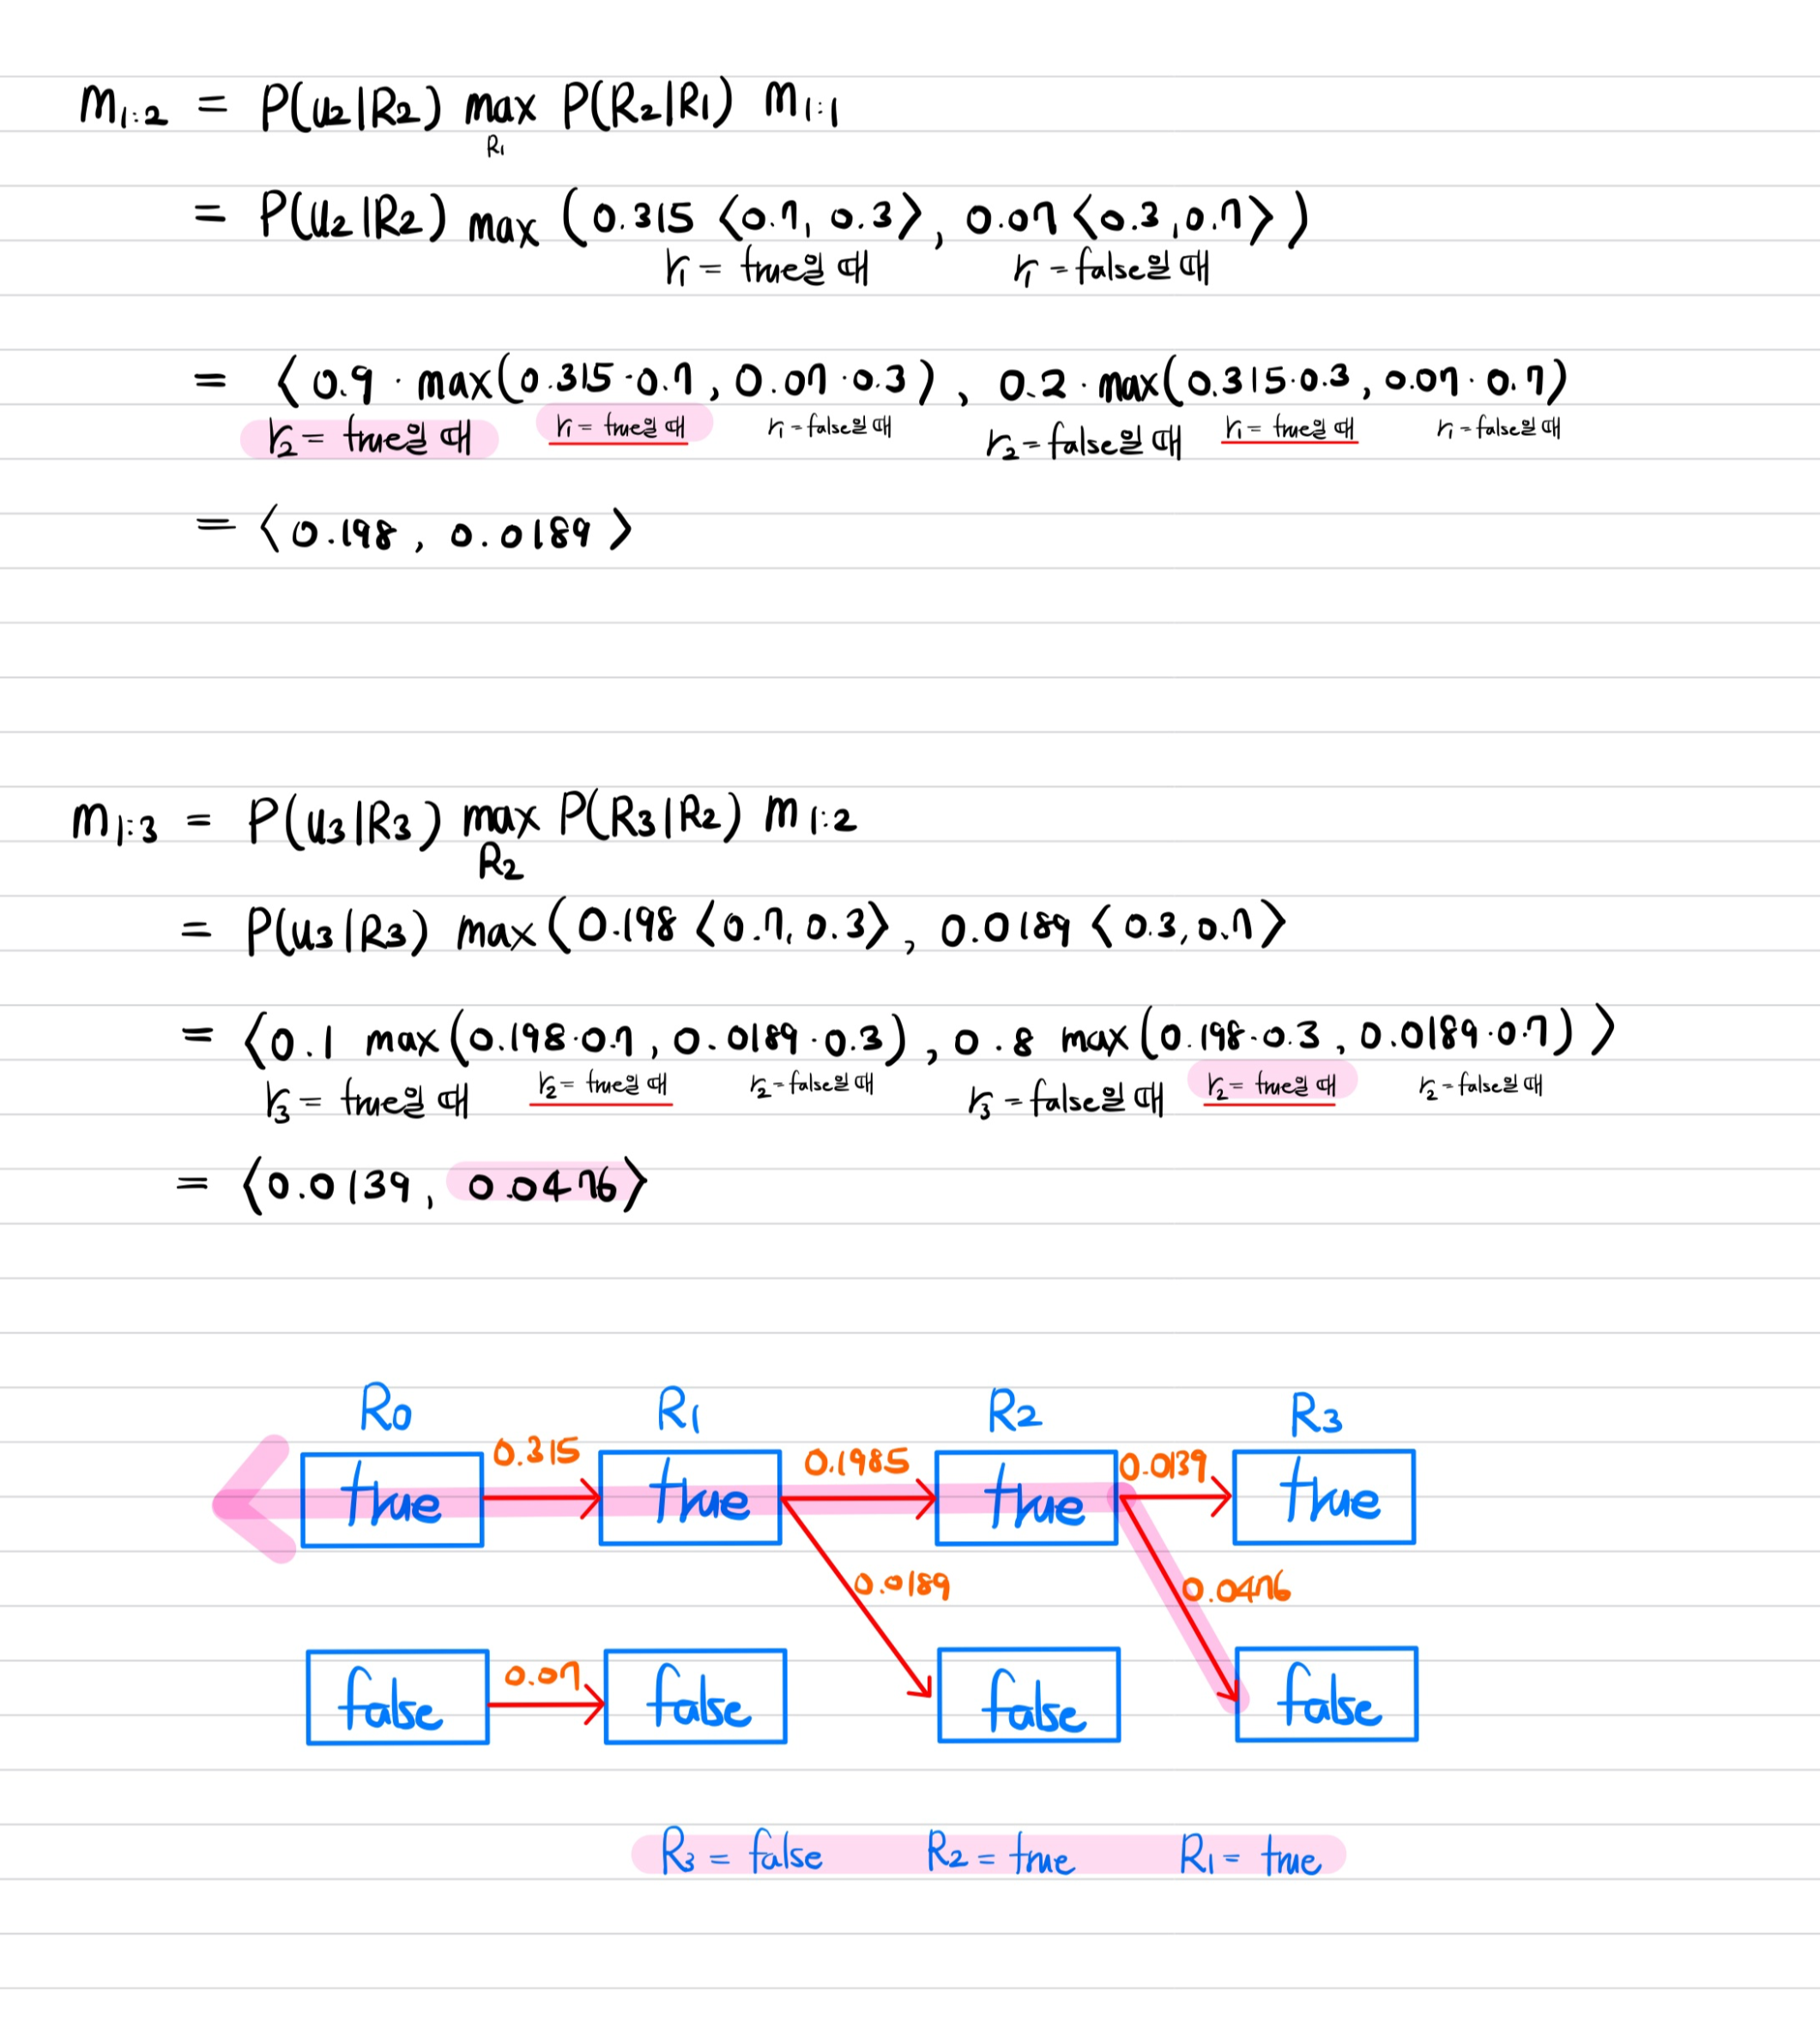 m1:2 = P(u2|R2) max P(R2|R1) m1:1
R1
= P(u2|R2) max (0.315 ⟨0.7, 0.3⟩, 0.07 ⟨0.3, 0.7⟩)
r1 = true일 때 r1 = false일 때
= ⟨0.9 · max(0.315·0.7, 0.07·0.3), 0.2 · max(0.315·0.3, 0.07·0.7)
r2 = true일 때 r1 = true일 때 r1 = false일 때 r2 = false일 때 r1 = true일 때 r1 = false일 때
= ⟨0.198, 0.0189⟩
m1:3 = P(u3|R3) max P(R3|R2) m1:2
R2
= P(u3|R3) max (0.198 ⟨0.7, 0.3⟩, 0.0189 ⟨0.3, 0.7⟩
= ⟨0.1 max(0.198·0.7, 0.0189·0.3), 0.8 max(0.198·0.3, 0.0189·0.7)⟩
r3 = true일 때 r2 = true일 때 r2 = false일 때 r3 = false일 때 r2 = true일 때 r2 = false일 때
= ⟨0.0139, 0.0476⟩
R0 R1 R2 R3
0.315 0.1985 0.0139
true true true true
0.0189 0.0476
0.07
false false false false
R3 = false R2 = true R1 = true